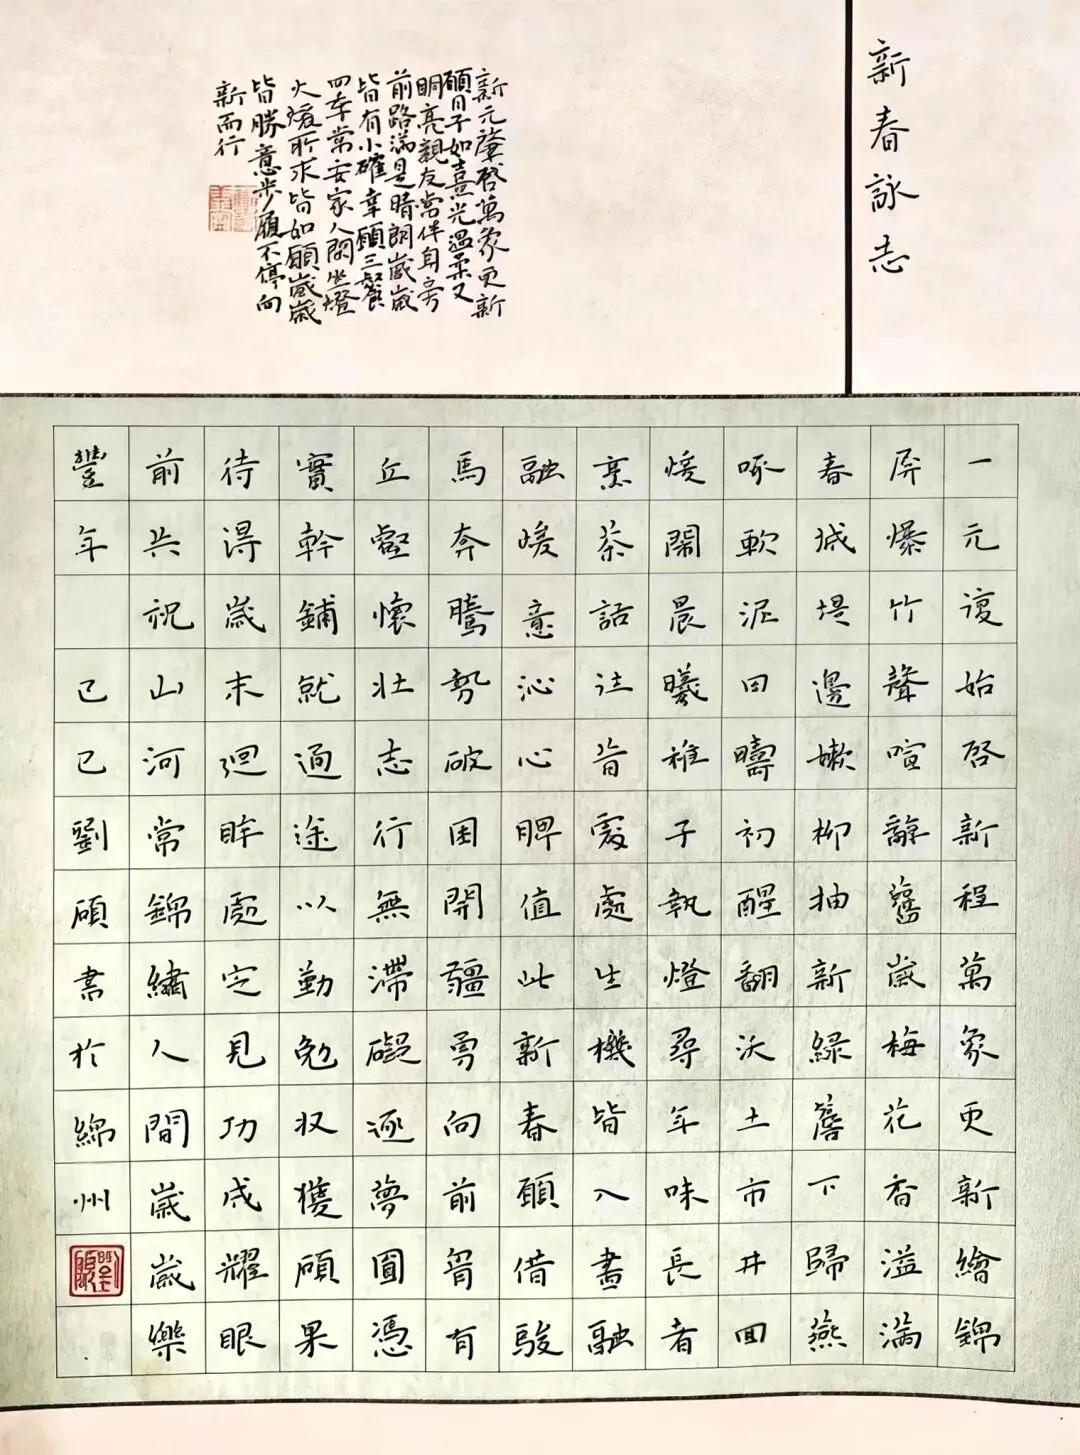 新春詠志
新元肇啓萬象更新
願日子如熹光溫柔又
明亮親友常伴身旁
前路滿是晴朗歲歲
皆有小確幸願三餐
四季常安家人閑坐燈
火煖所求皆如願歲歲
皆勝意步履不停向
新而行
一元復始啓新程萬象更新繪錦
屏爆竹聲喧辭舊歲梅花香溢滿
春城堤邊嫩柳抽新綠簷下歸燕
啄軟泥田疇初醒翻沃土市井回
煖鬧晨曦稚子執燈尋年味長者
烹茶話往昔處處生機皆入畫融
融暖意沁心脾值此新春願借駿
馬奔騰勢破困開疆勇向前胷有
丘壑懷壯志行無滯礙逐夢圓憑
實幹鋪就通途以勤勉收獲碩果
待得歲末迴眸處定見功成耀眼
前共祝山河常錦繡人間歲歲樂
豐年 已巳劉碩書於綿州